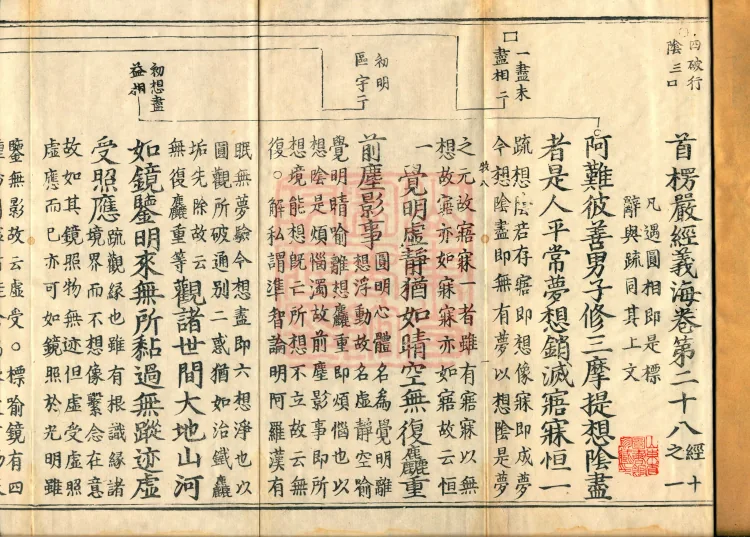 四破行
陰三口
一盡未
盡相二
初明
區宇二
初想盡
益相
首楞嚴經義海卷第二十八 經十之一
凡遇圓相即是標
辭與疏同其上文
阿難彼善男子修三摩提想陰盡
者是人平常夢想銷滅寤寐恒一
疏想陰若存寤即想像寐即成夢
令想陰盡即無有夢以想陰是夢
之元故寤寐一者雖有寤寐以無
想故寤亦如寐寐亦如寤故云恒
一
覺明虛靜猶如晴空無復麤重
前塵影事
圓明心體名為覺明離
想浮動故名虛靜空喻
覺明晴喻離想麤重即煩惱也以
想陰是煩惱濁故前塵影事即所
想境能想既亡所想不立故云無
復。解私謂準智論明阿羅漢有
眠無夢驗今想盡即六想淨也以
圓觀所破通別二惑猶如治鐵麤
垢先除故云
無復麤重等
觀諸世間大地山河
如鏡鑒明來無所黏過無蹤迹虛
受照應
疏觀緣也雖有根識緣諸
境界而不想像繫念在意
故如其鏡照物無迹但虛受虛照
虛應而已亦可如鏡照於光明雖
鑒無影故云虛受。標喻鏡有四